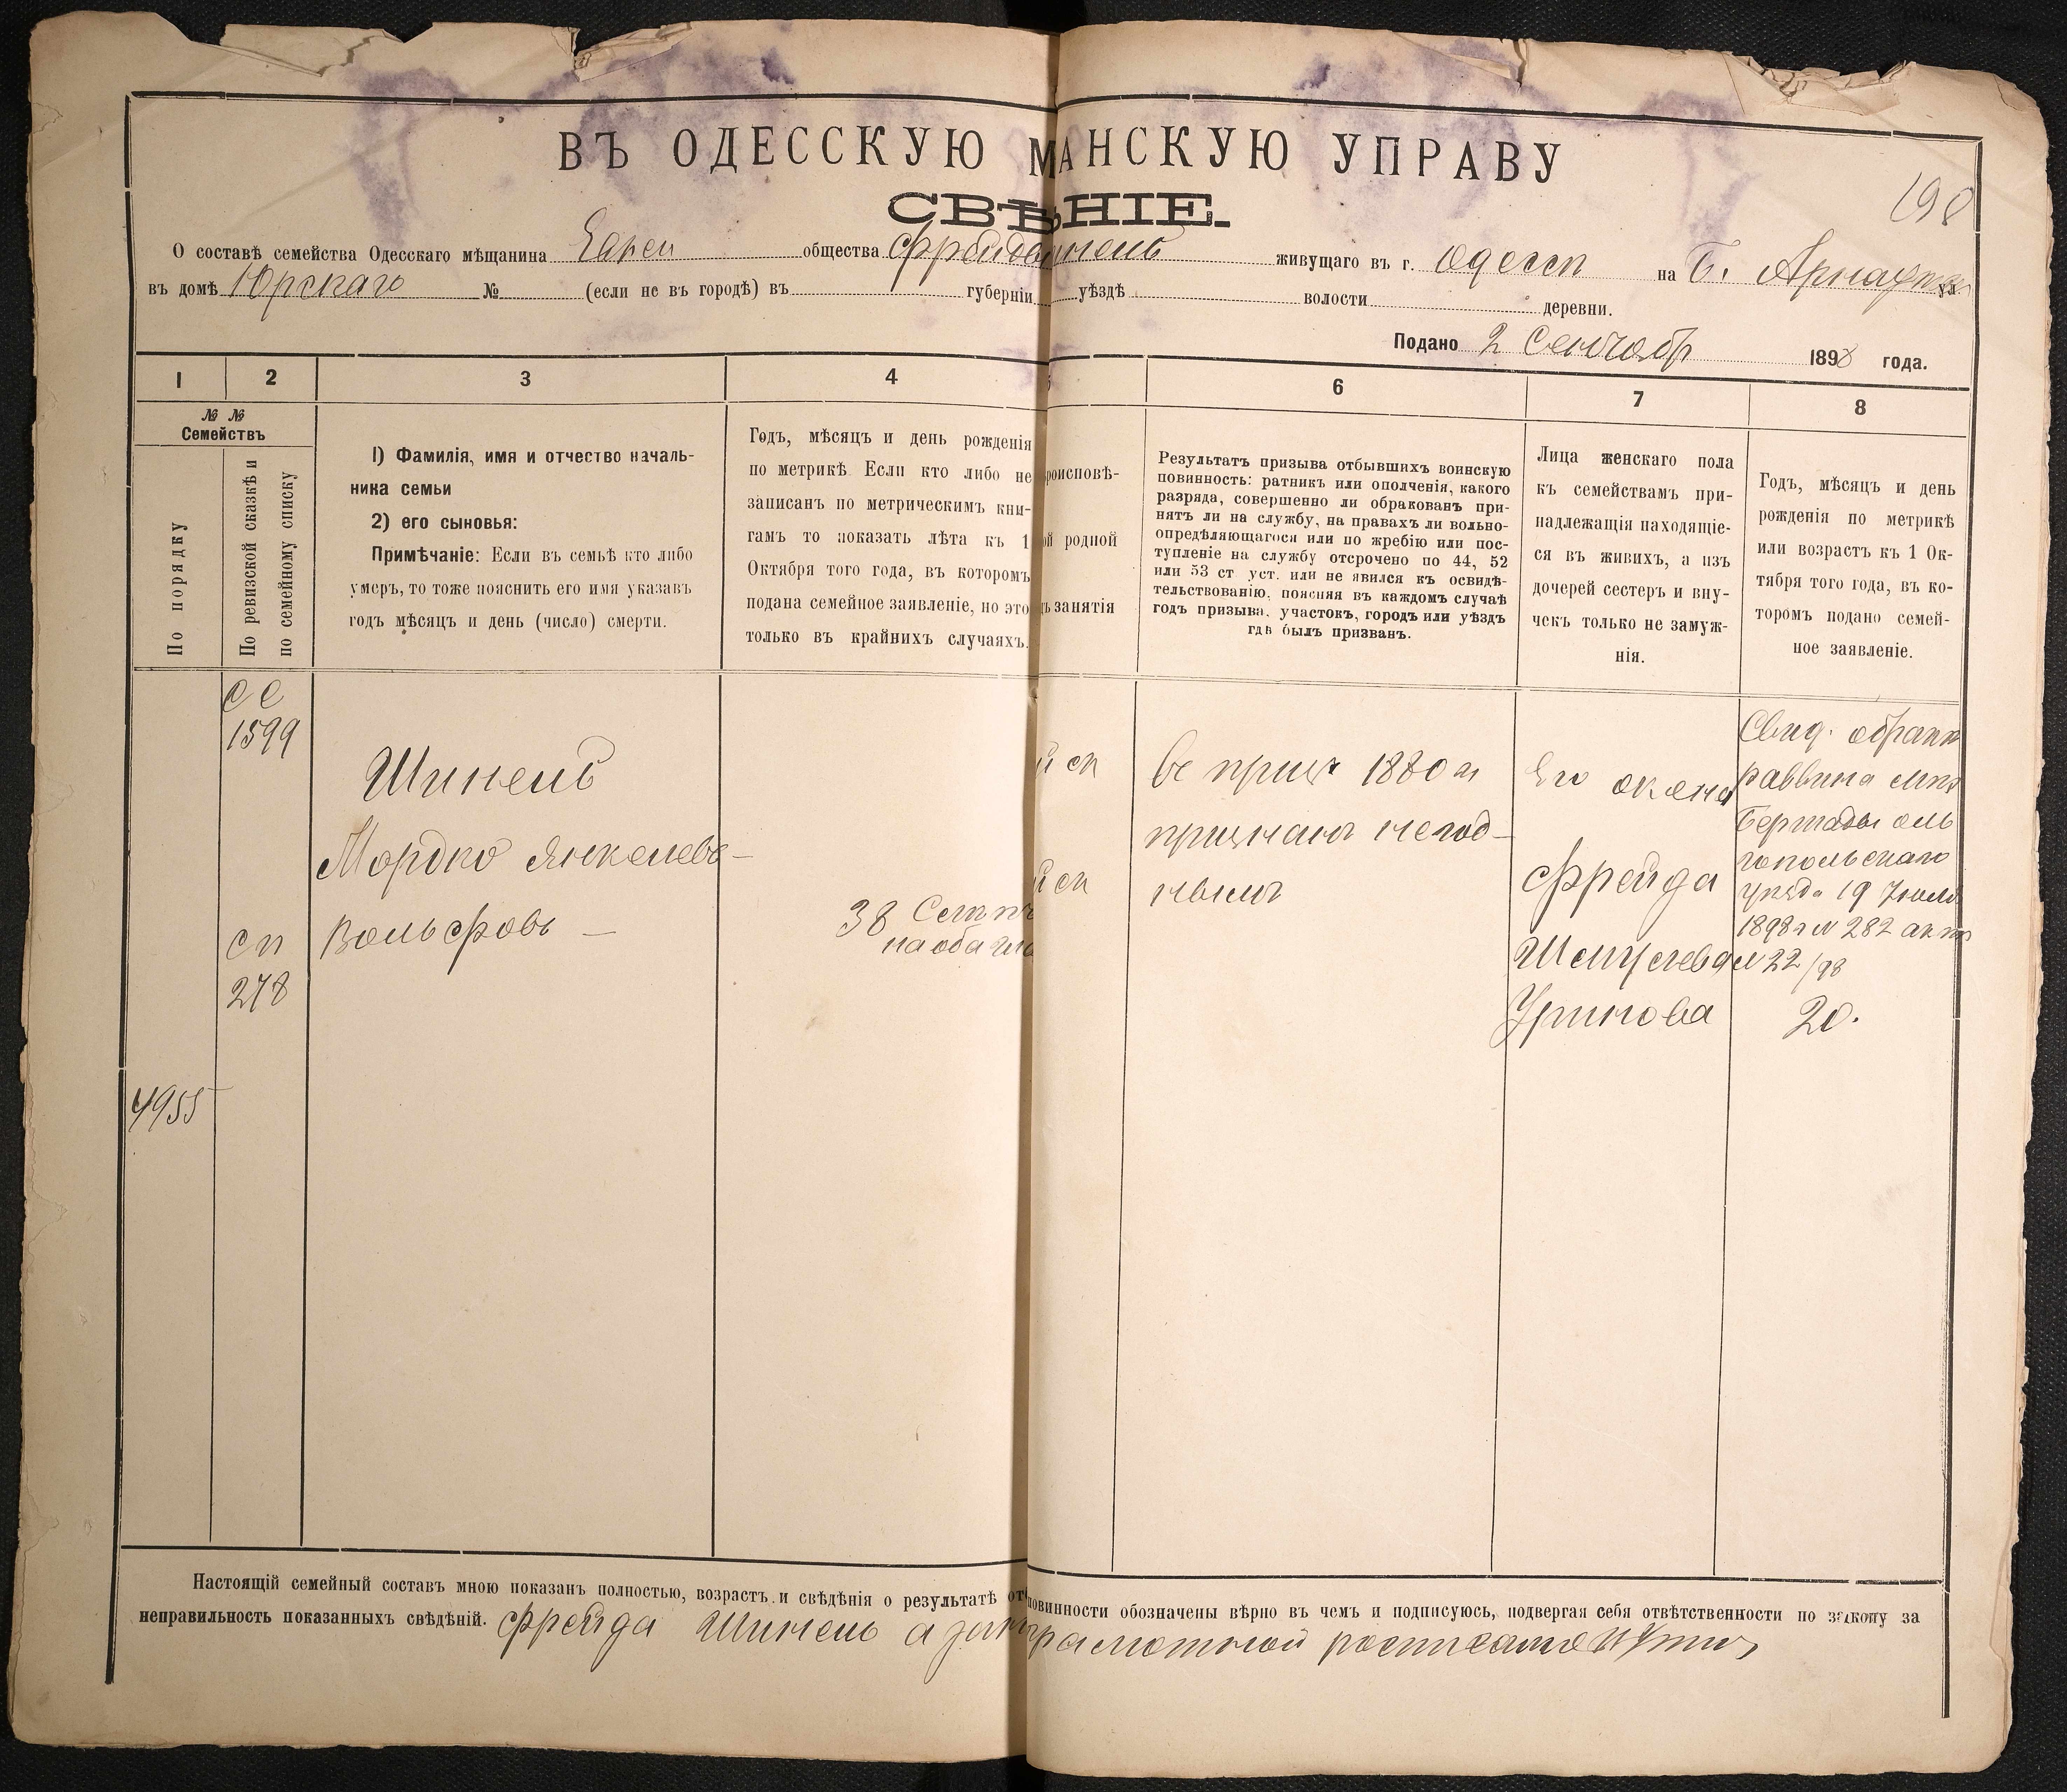 ВЪ ОДЕССКУЮ МАНСКУЮ УПРАВУ
СВѢНІЕ.
198
О составѣ семейства Одесскаго мѣщанина Евреи общества Фрейда Шинель живущаго въ г. Одессѣ на Б. Арнаутск ул.
въ домѣ Юрскаго № (если не въ городѣ) въ губерніи уѣздѣ волости деревни.
Подано 2 Сентябр 1898 года.
1 2 3 4 5 6 7 8
№ №
Семействъ
По порядку
По ревизской сказкѣ и
по семейному списку
1) Фамилія, имя и отчество началь-
ника семьи
2) его сыновья:
Примѣчаніе: Если въ семьѣ кто либо
умеръ, то тоже пояснить его имя указавъ
годъ мѣсяцъ и день (число) смерти.
Годъ, мѣсяцъ и день рожденія
по метрикѣ. Если кто либо не
записанъ по метрическимъ кни-
гамъ то показать лѣта къ 1
Октября того года, въ которомъ
подана семейное заявленіе, но это
только въ крайнихъ случаяхъ.
роисповѣ-
ой родной
ъ занятія
Результатъ призыва отбывшихъ воинскую
повинность: ратникъ или ополченія, какого
разряда, совершенно ли обракованъ при-
нятъ ли на службу, на правахъ ли вольно-
опредѣляющагося или по жребію или пос-
тупленіе на службу отсрочено по 44, 52
или 53 ст уст. или не явился къ освидѣ-
тельствованію, поясняя въ каждомъ случаѣ
годъ призыва, участокъ, городъ или уѣздъ
гдѣ былъ призванъ.
Лица женскаго пола
къ семействамъ при-
надлежащія находящіе-
ся въ живихъ, а изъ
дочерей сестеръ и вну-
чекъ только не замуж-
нія.
Годъ, мѣсяцъ и день
рожденія по метрикѣ
или возрастъ къ 1 Ок-
тября того года, въ ко-
торомъ подано семей-
ное заявленіе.
се
1599
Шинель
Мордко Янкелевъ —
Вольфовъ —
сп
278
4955
38
на оба
й сп
й сп
въ приз 1880 г
признанъ негод-
нымъ
Его жена
Фрейда
Шмулева
Уринова
Свид.
раввина мѣст
Бершады оль
гопольскаго
уѣзда 19 Іюля
1898 г № 282 акт
№ 22/98
20.
Настоящій семейный составъ мною показанъ полностью, возрастъ и свѣдѣнія о результатѣ от повинности обозначены вѣрно въ чемъ и подписуюсь, подвергая себя отвѣтственности по закону за
неправильность показанныхъ свѣдѣній. Фрейда Шинель а за грамотной росписался